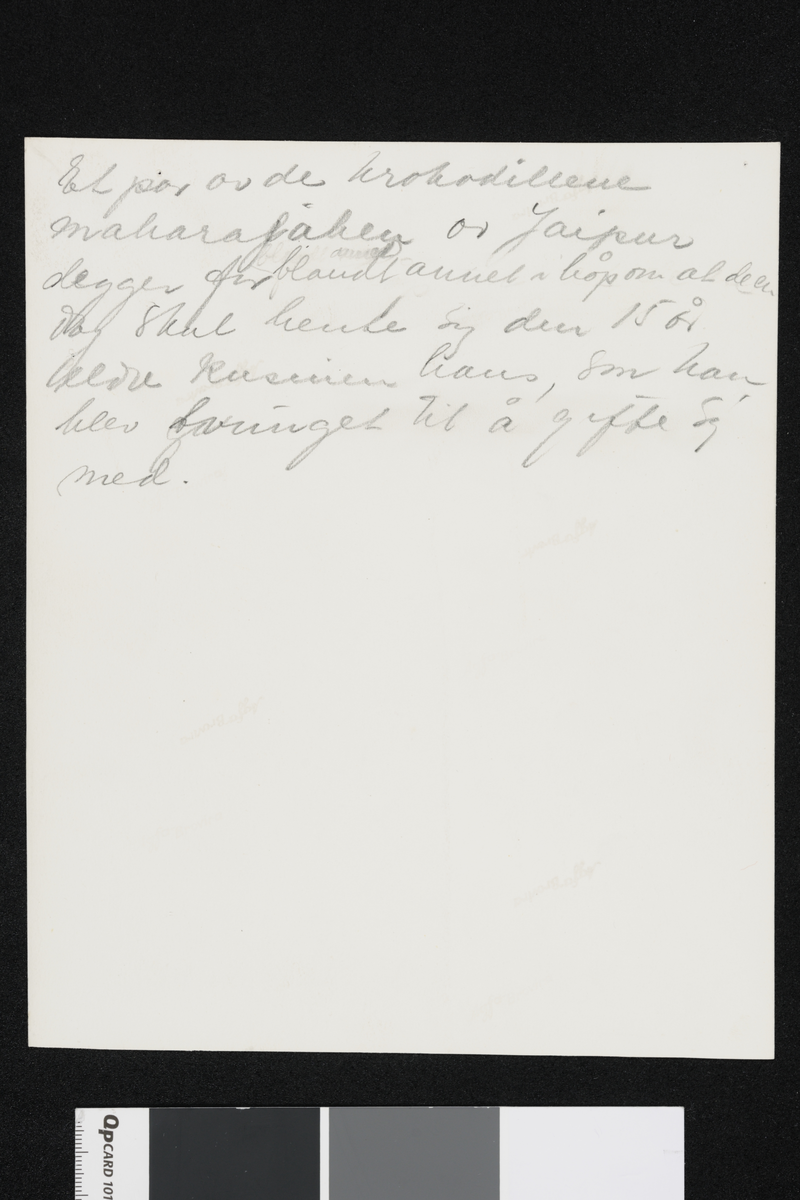 Et par av de krokodillene
maharajahen av Jaipur
degger for blandt annet i håp om at de en
dag skul hente sig den 15 år
eldre kusinen hans, som han
blev tvunget til å gifte sig
med.
QPCARD 101